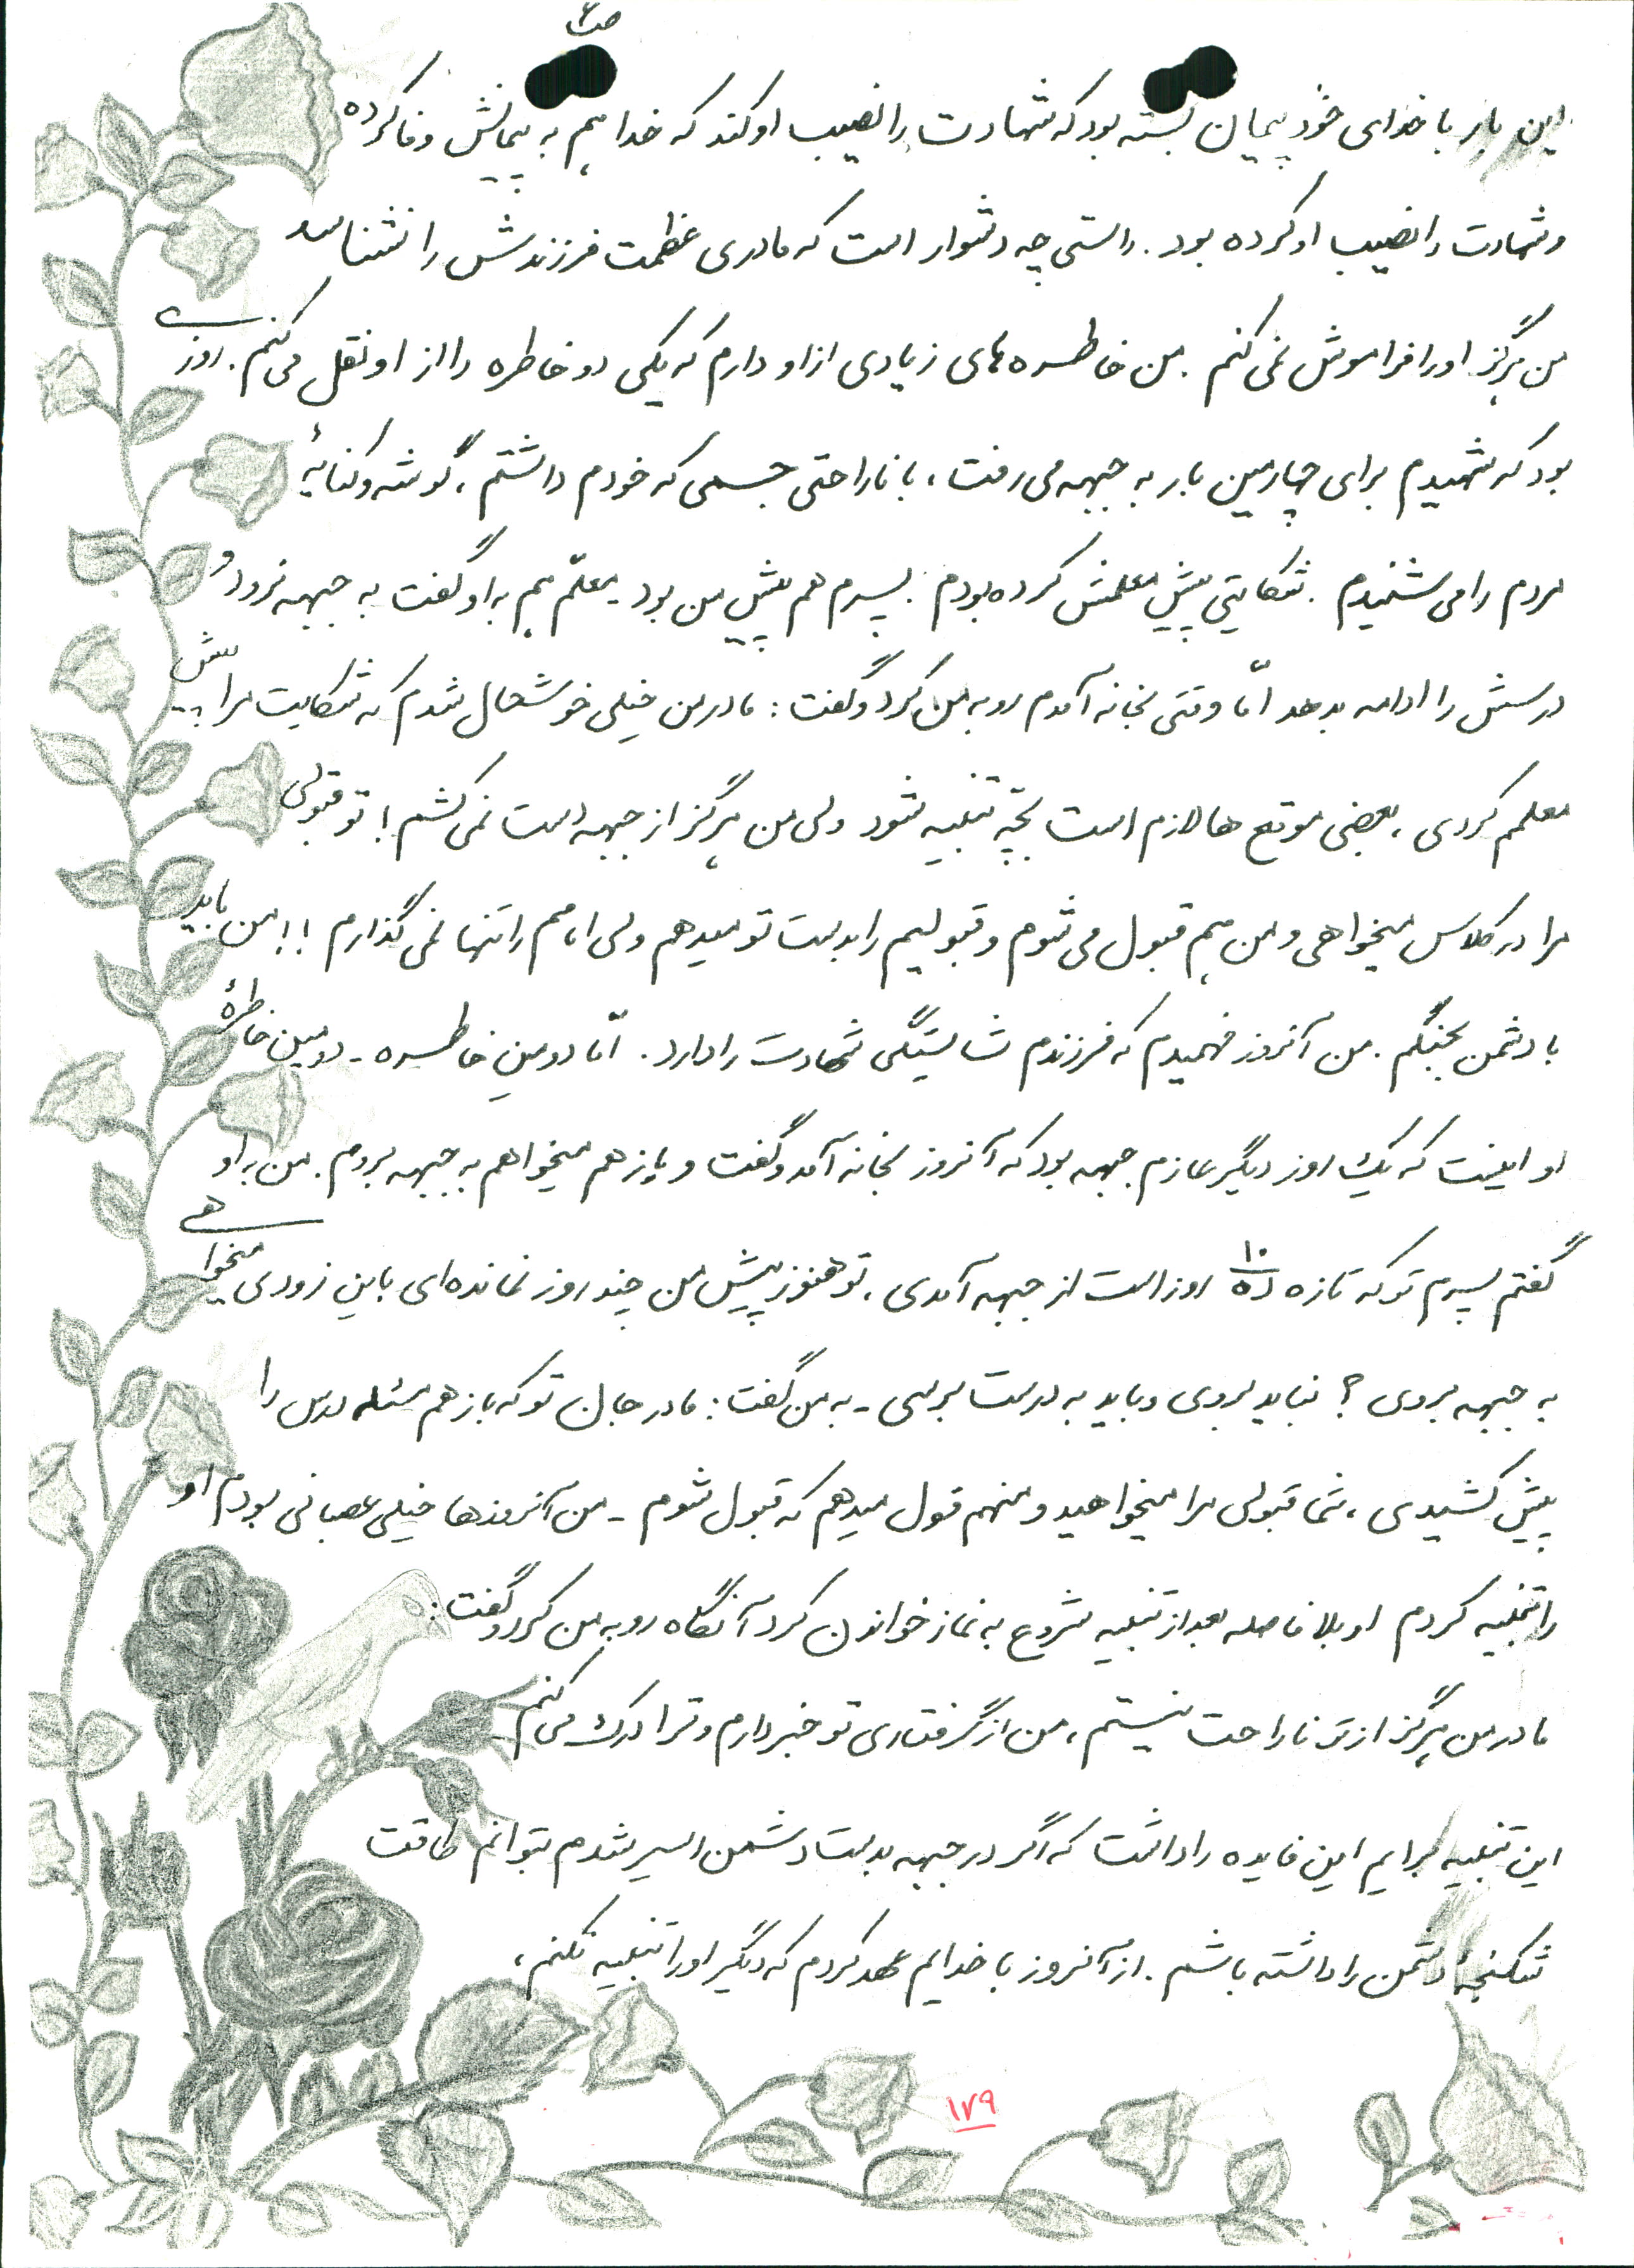 ص۶
این بار با خدای خود پیمان بسته بود که شهادت را نصیب او کند که خدا هم به پیمانش وفا کرده
و شهادت را نصیب او کرده بود. راستی چه دشوار است که مادری عظمت فرزندش را نشناسد
من هرگز او را فراموش نمی کنم. من خاطره های زیادی از او دارم که یکی دو خاطره را از او نقل می کنم. روزی
بود که شهیدم برای چهارمین بار به جبهه می رفت، با ناراحتی جسمی که خودم داشتم، گوشه و کنایۀ
مردم را می شنیدم. شکایتی پیش معلمش کرده بودم. پسرم هم پیش من بود معلّم هم به او گفت به جبهه نرود و
درسش را ادامه بدهد امّا وقتی بخانه آمدم رو به من کرد و گفت: مادر من خیلی خوشحال شدم که شکایت مرا پیش
معلمم کردی، بعضی موقع ها لازم است بچّه تنبیه شود ولی من هرگز از جبهه دست نمی کشم! تو قبولی
مرا در کلاس میخواهی و من هم قبول می شوم و قبولیم را بدست تو میدهم ولی امامم را تنها نمی گذارم!! من باید
با دشمن بجنگم. من آنروز فهمیدم که فرزندم شایستگی شهادت را دارد. امّا دومین خاطره - دومین خاطرۀ
او اینست که یک روز دیگر عازم جبهه بود که آنروز بخانه آمد و گفت و بازهم میخواهم به جبهه بروم. من به او
گفتم پسرم تو که تازه ۱۰ ده روز است از جبهه آمدی، تو هنوز پیش من چند روز نمانده ای باین زودی میخواهی
به جبهه بروی؟ نباید بروی و باید به درست برسی - به من گفت: مادر جان تو که باز هم مسئله درس را
پیش کشیدی، شما قبولی مرا میخواهید و منهم قول میدهم که قبول شوم - من آنروزها خیلی عصبانی بودم او
را تنبیه کردم او بلافاصله بعد از تنبیه شروع به نماز خواندن کرد آنگاه رو به من کرد و گفت:
مادر من هرگز از تو ناراحت نیستم، من از گرفتاری تو خبر دارم و ترا درک می کنم
این تنبیه برایم این فایده را داشت که اگر در جبهه بدست دشمن اسیر شدم بتوانم طاقت
شکنجۀ دشمن را داشته باشم. از آنروز با خدایم عهد کردم که دیگر او را تنبیه نکنم،
۱۷۹